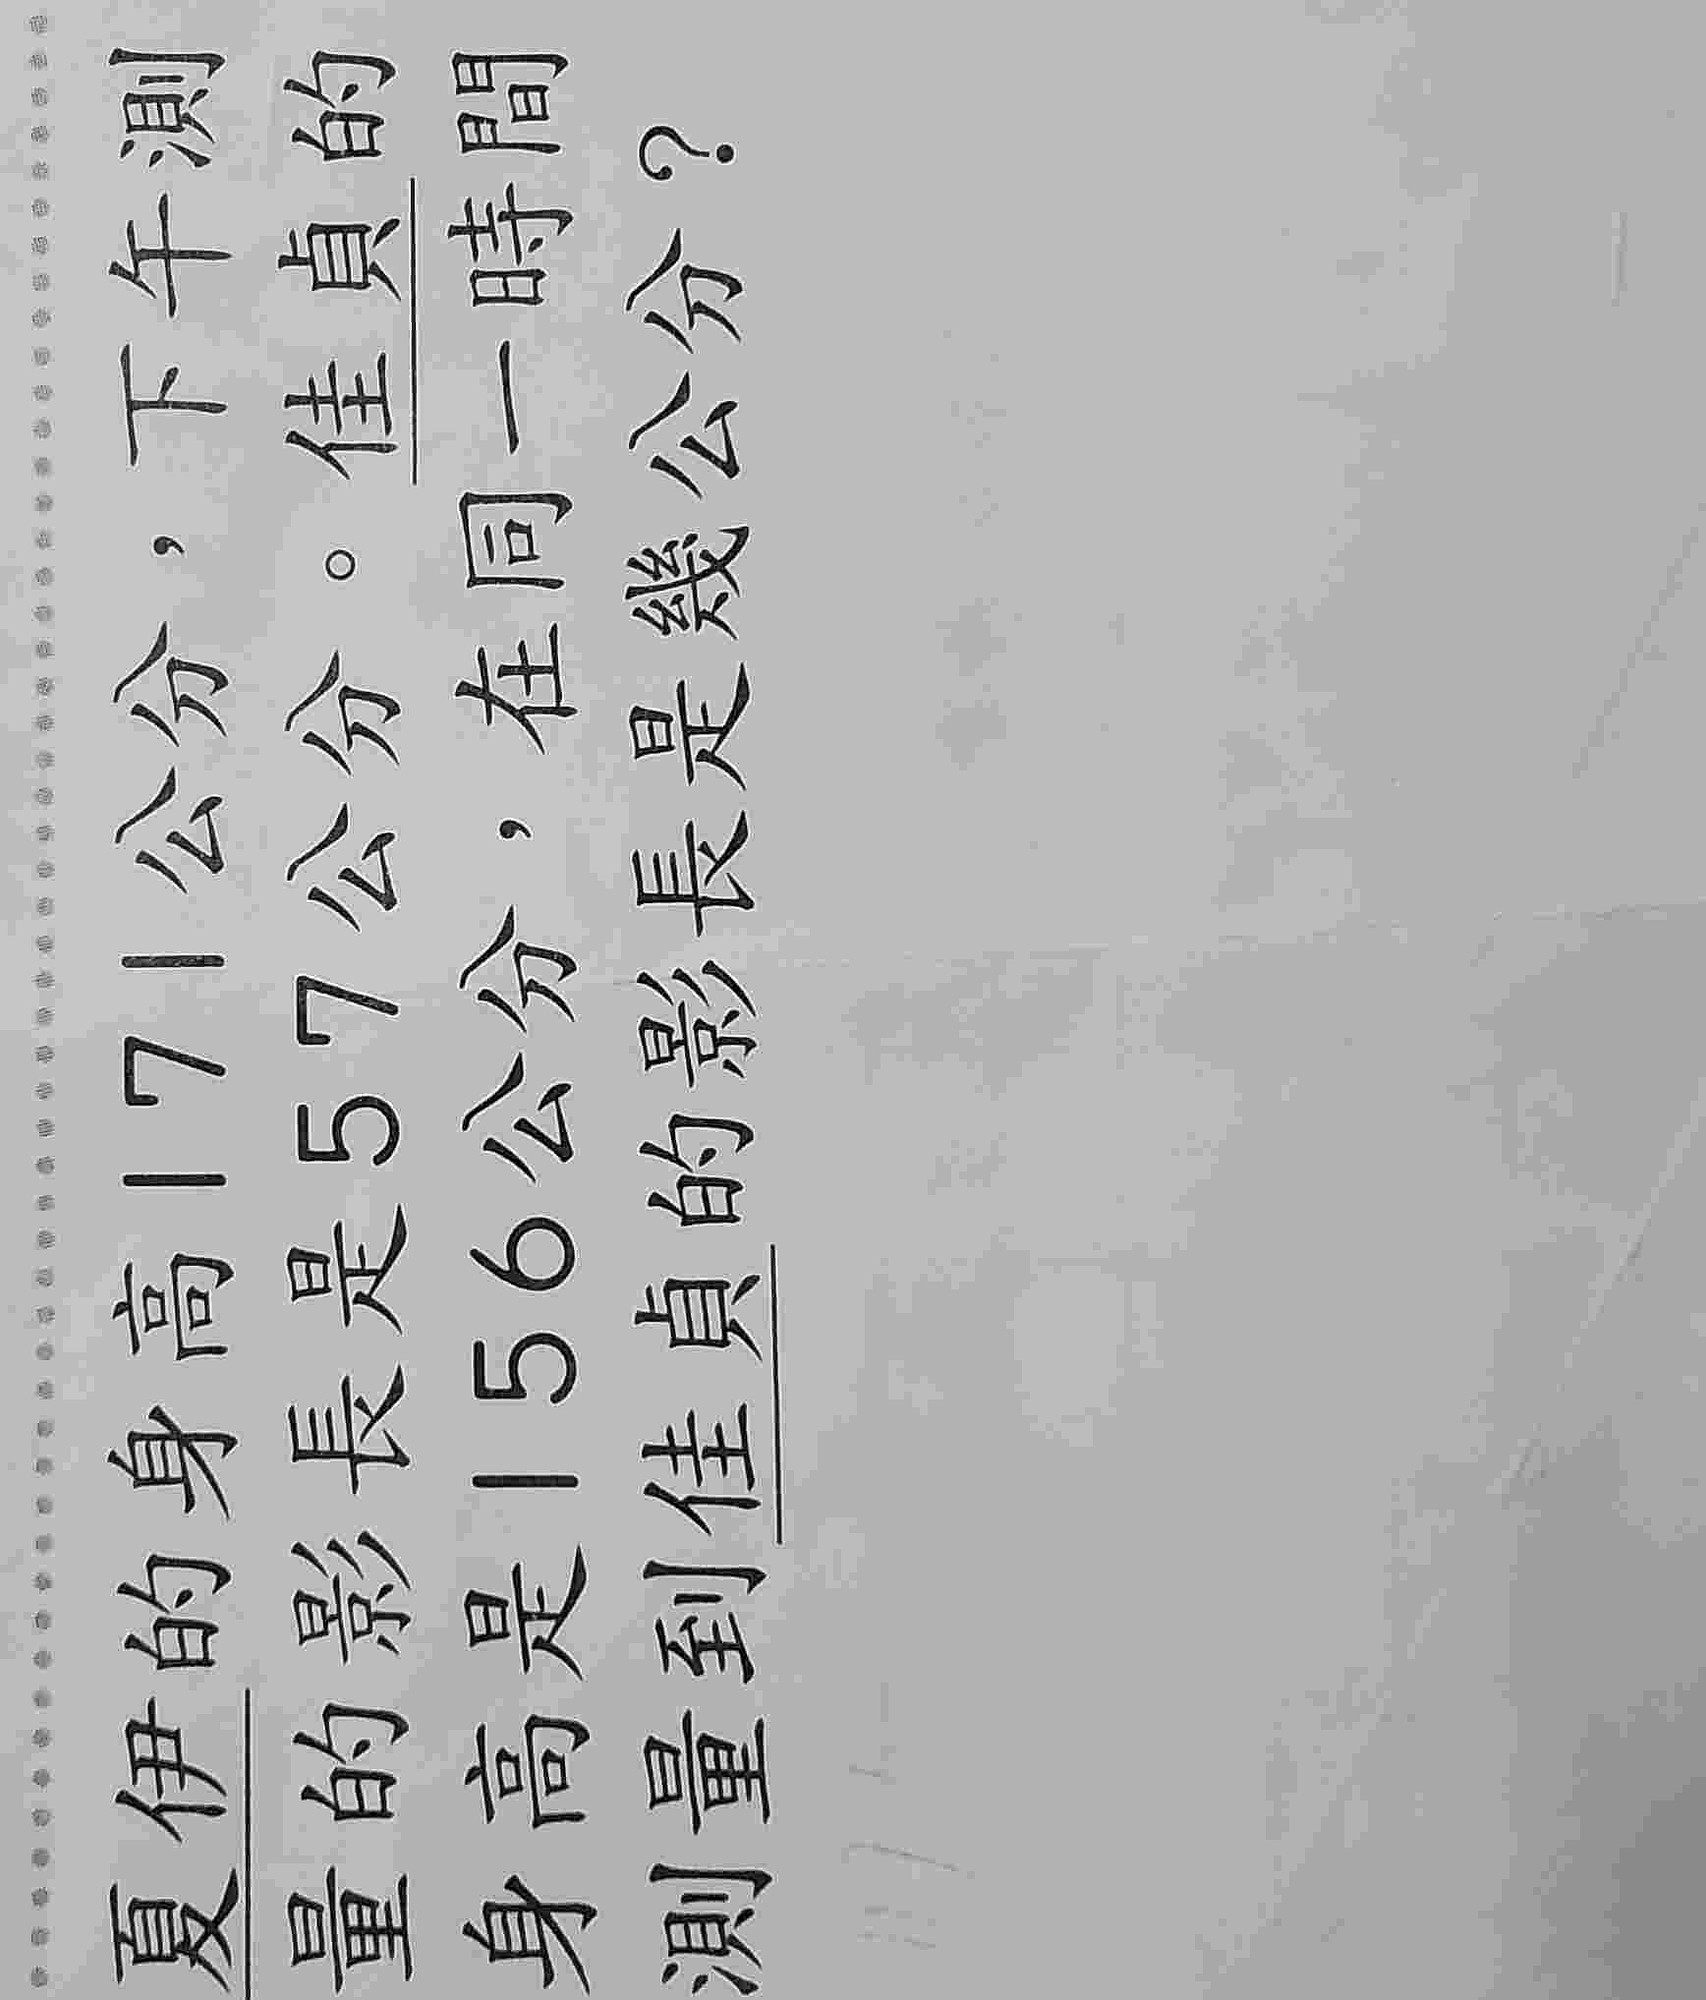 夏伊的身高171公分，下午測
量的影長是57公分。佳貞的
身高是156公分，在同一時間
測量到佳貞的影長是幾公分？